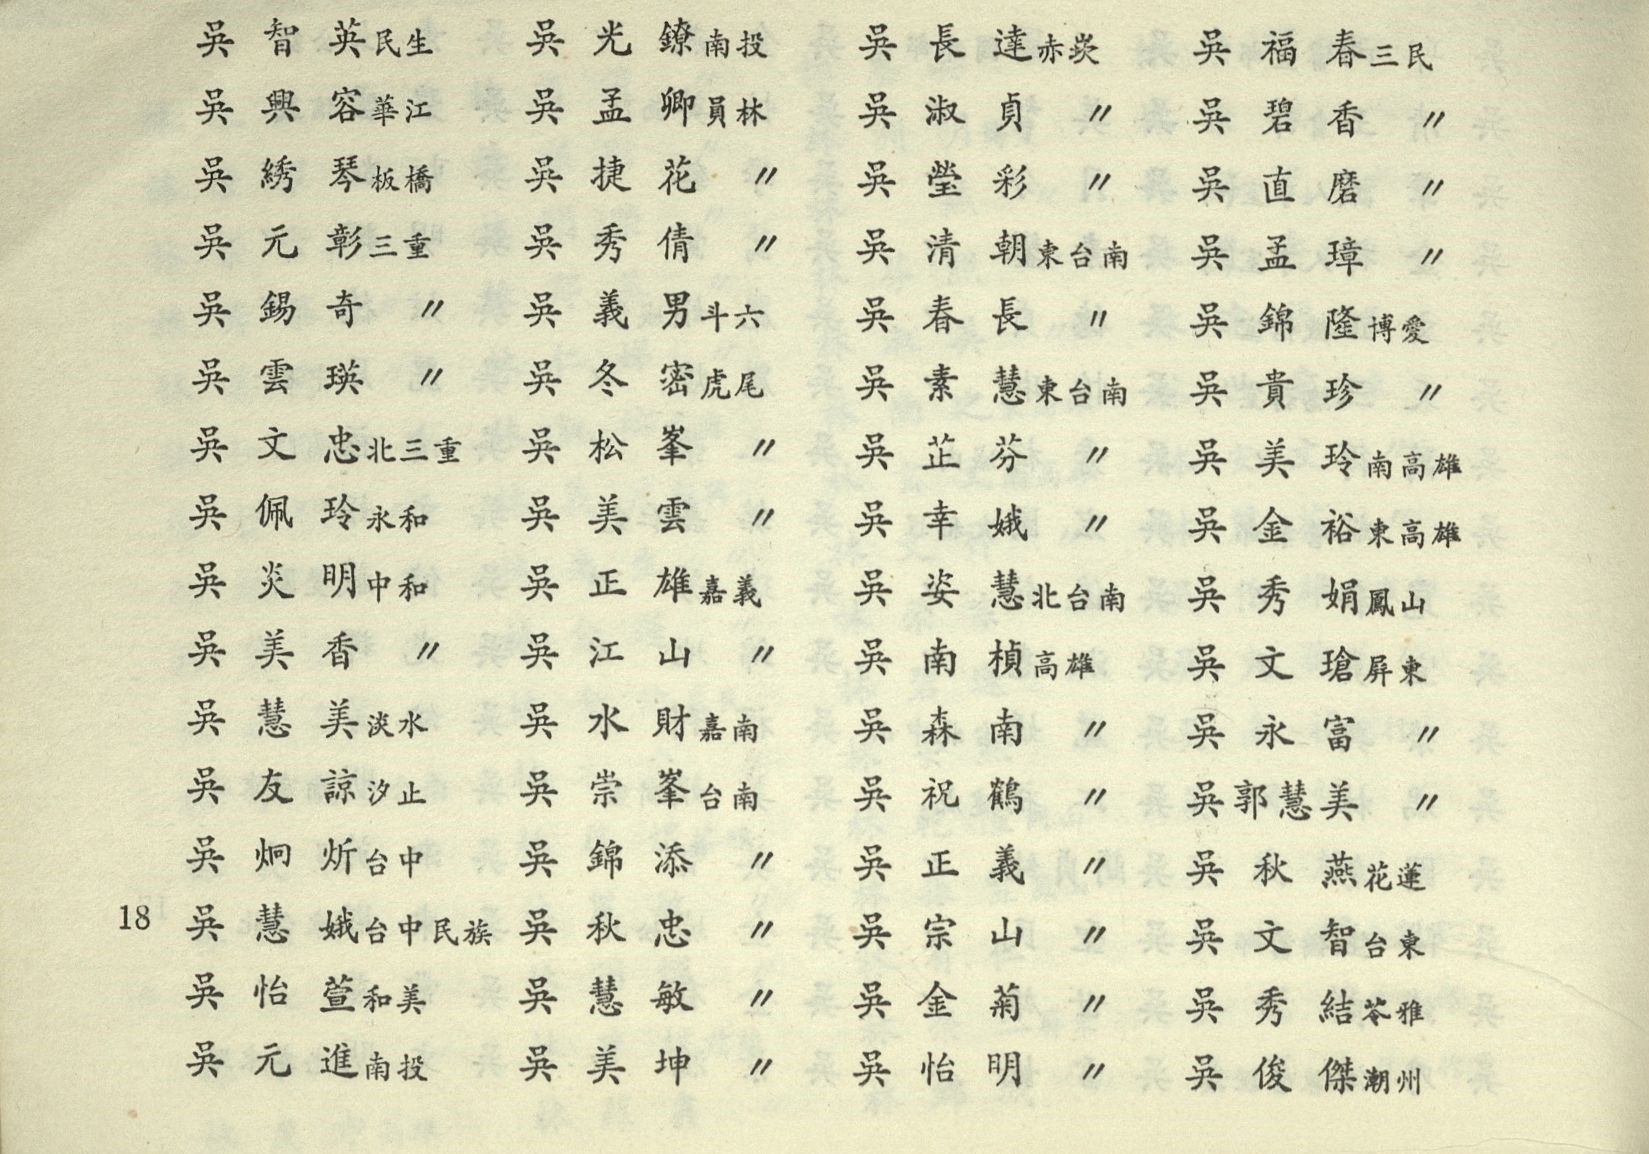 吳智英民生　吳光鐐南投　吳長達赤崁　吳福春三民
吳興容華江　吳孟卿員林　吳淑貞〃　吳碧香〃
吳綉琴板橋　吳捷花〃　吳瑩彩〃　吳直磨〃
吳元彰三重　吳秀倩〃　吳清朝東台南　吳孟璋〃
吳錫奇〃　吳義男斗六　吳春長〃　吳錦隆博愛
吳雲瑛〃　吳冬密虎尾　吳素慧東台南　吳貴珍〃
吳文忠北三重　吳松峯〃　吳芷芬〃　吳美玲南高雄
吳佩玲永和　吳美雲〃　吳幸娥〃　吳金裕東高雄
吳炎明中和　吳正雄嘉義　吳姿慧北台南　吳秀娟鳳山
吳美香〃　吳江山〃　吳南楨高雄　吳文瑲屏東
吳慧美淡水　吳水財嘉南　吳森南〃　吳永富〃
吳友諒汐止　吳崇峯台南　吳祝鶴〃　吳郭慧美〃
吳炯炘台中　吳錦添〃　吳正義〃　吳秋燕花蓮
18　吳慧娥台中民族　吳秋忠〃　吳宗山〃　吳文智台東
吳怡萱和美　吳慧敏〃　吳金菊〃　吳秀結苓雅
吳元進南投　吳美坤〃　吳怡明〃　吳俊傑潮州